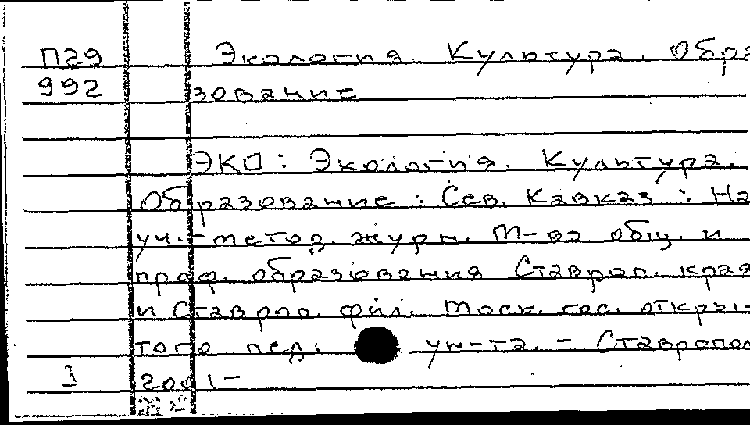 П29 Экология. Культура. Обра
992 зование
ЭКО: Экология. Культура.
Образование: Сев. Кавказ: На
уч.-метод. журн. М-ва общ. и
проф. образования Ставроп. края
и Ставроп. фил. Моск. гос. откры-
того пед. ун-та. - Ставропол
1 2001-